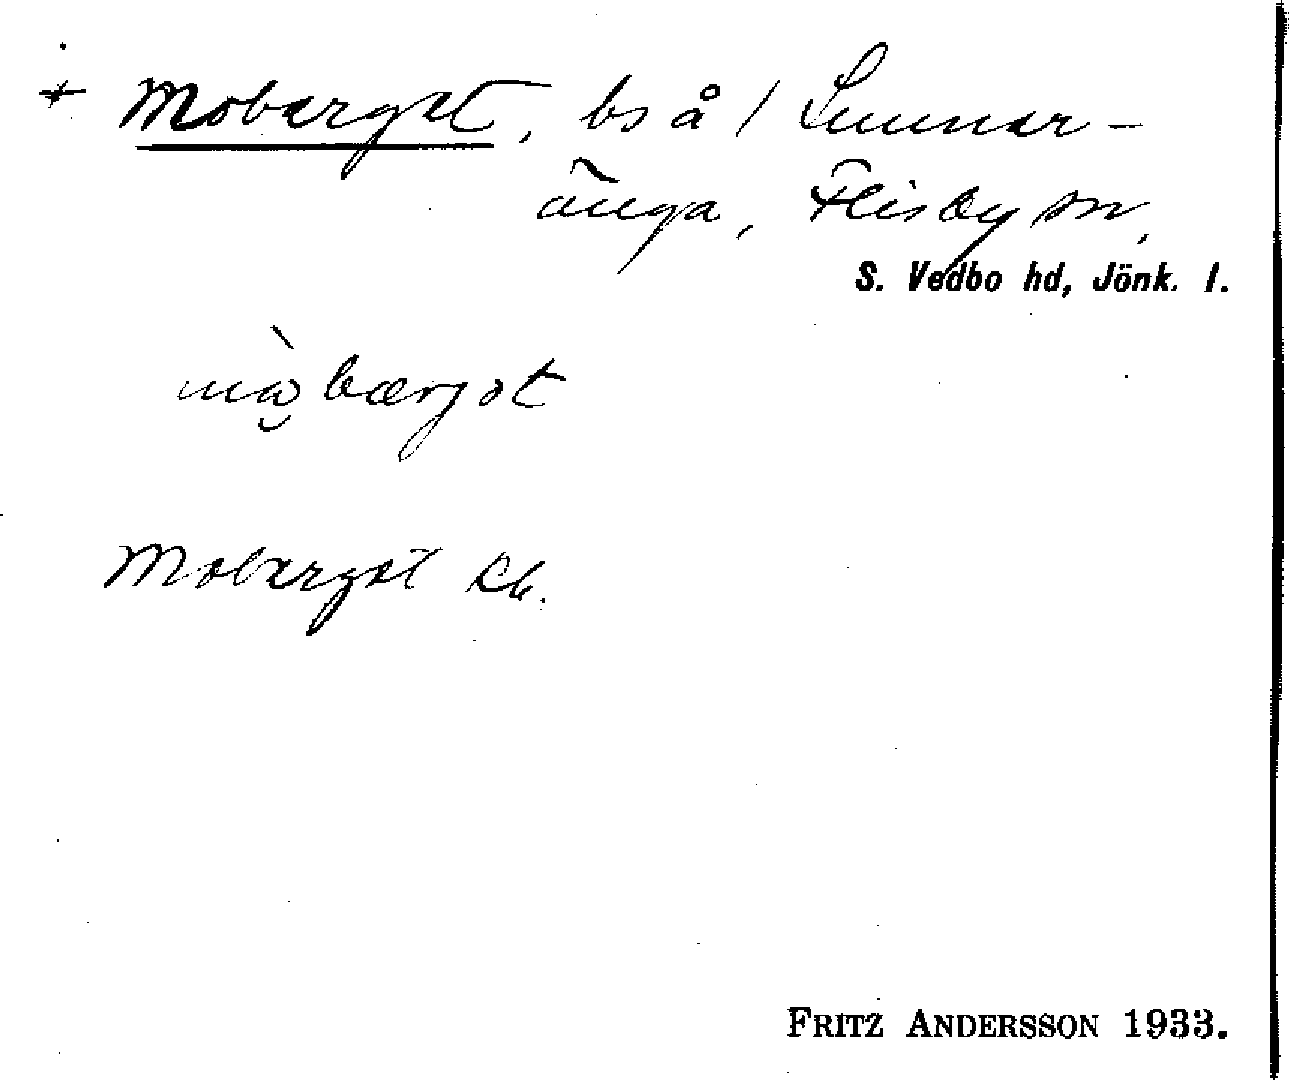 + Moberget, bs å 1 Sunner-
änga, Flisby sn,
S. Vedbo hd, Jönk. l.
Moberget Kb.
FRITZ ANDERSSON 1933.